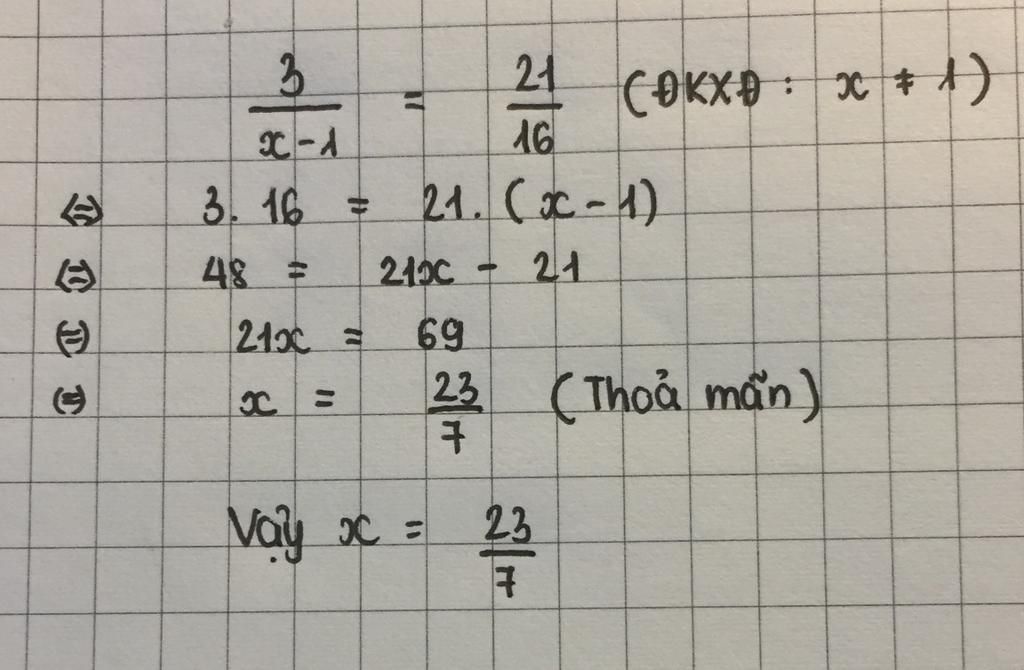 3/(x-1) = 21/16 (ĐKXĐ : x ≠ 1)
⇔ 3. 16 = 21. (x - 1)
⇔ 48 = 21x - 21
⇔ 21x = 69
⇔ x = 23/7 (Thoả mãn)
Vậy x = 23/7